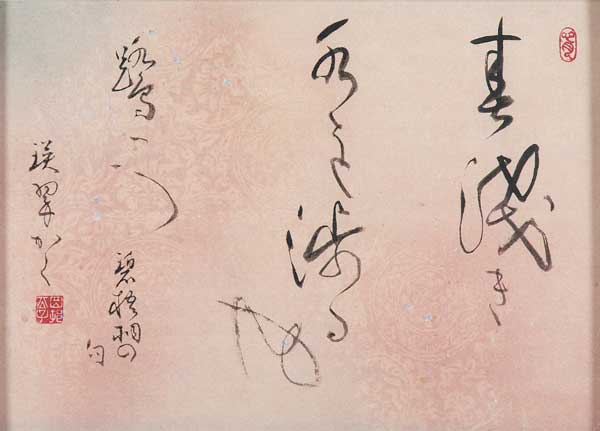 春浅き
水を渉る
や
鷺一つ
碧梧桐の
句
瑛翠かく